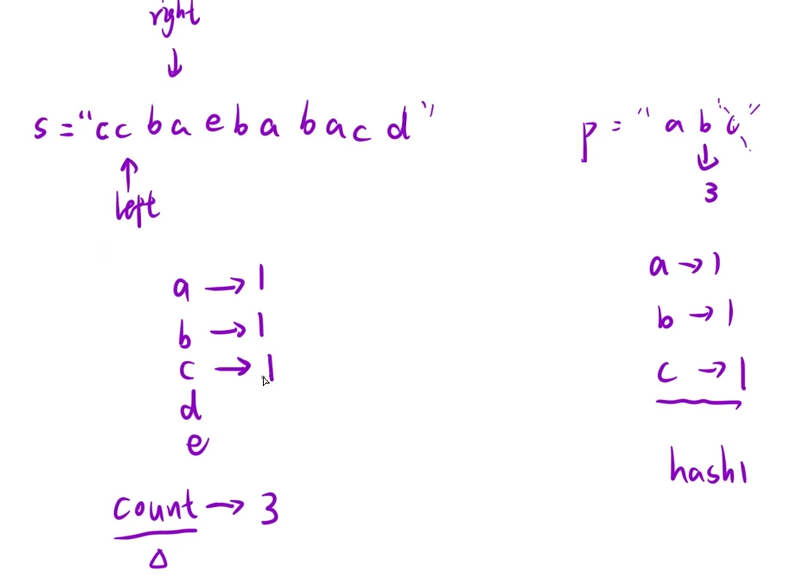 right
↓
s = "c c b a e b a b a c d"
p = "a b c"
↑
left
↓
3
a → 1
b → 1
c → 1
d
e
a → 1
b → 1
c → 1
hash1
count → 3
Δ